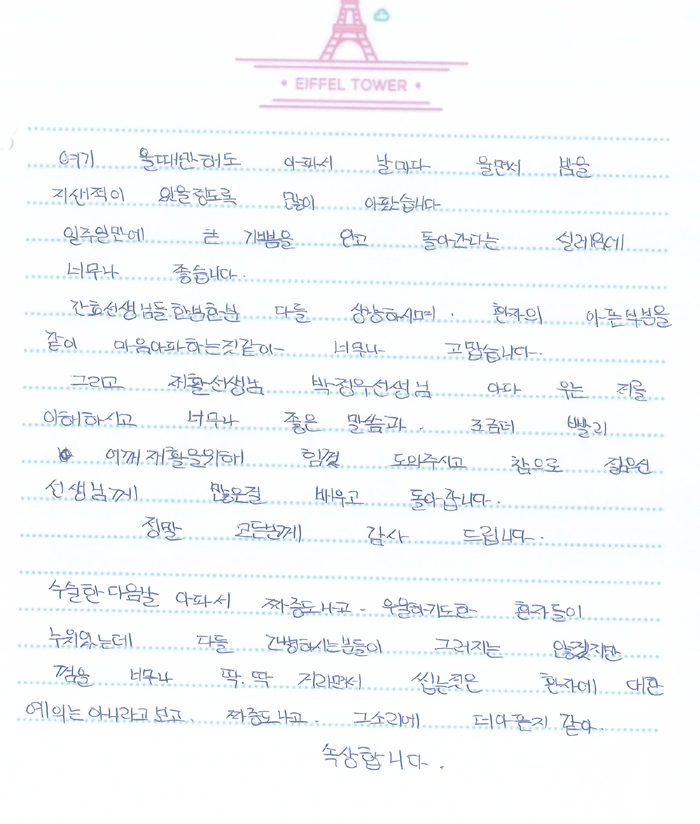 EIFFEL TOWER
여기 올때만해도 아파서 날마다 울면서 밤을
지샌적이 있을정도록 많이 아팠습니다
일주일만에 큰 기쁨을 안고 돌아간다는 설레임에
너무나 좋습니다.
간호선생님들한분한분 다들 상냥하시며. 환자의 아픈부분을
같이 마음아파하는것같아 너무나 고맙습니다.
그리고 재활선생님 박정우선생님 아다 우는 저를
이해하시고 너무나 좋은 말씀과. 조금더 빨리
어께재활을위해 힘껏 도와주시고 참으로 젊은신
선생님께 많은걸 배우고 돌아갑니다.
정말 고든분께 감사 드립니다.
수술한다음날 아파서 짜증도나고. 우울하기도한 환자들이
누워있는데 다들 간병하시는분들이 그러지는 않겠지만
껌을 너무나 딱.딱 거리면서 씹는것은 환자에 대한
예의는아니라고보고. 짜증도나고. 그소리에 더아픈지 같아
속상합니다.